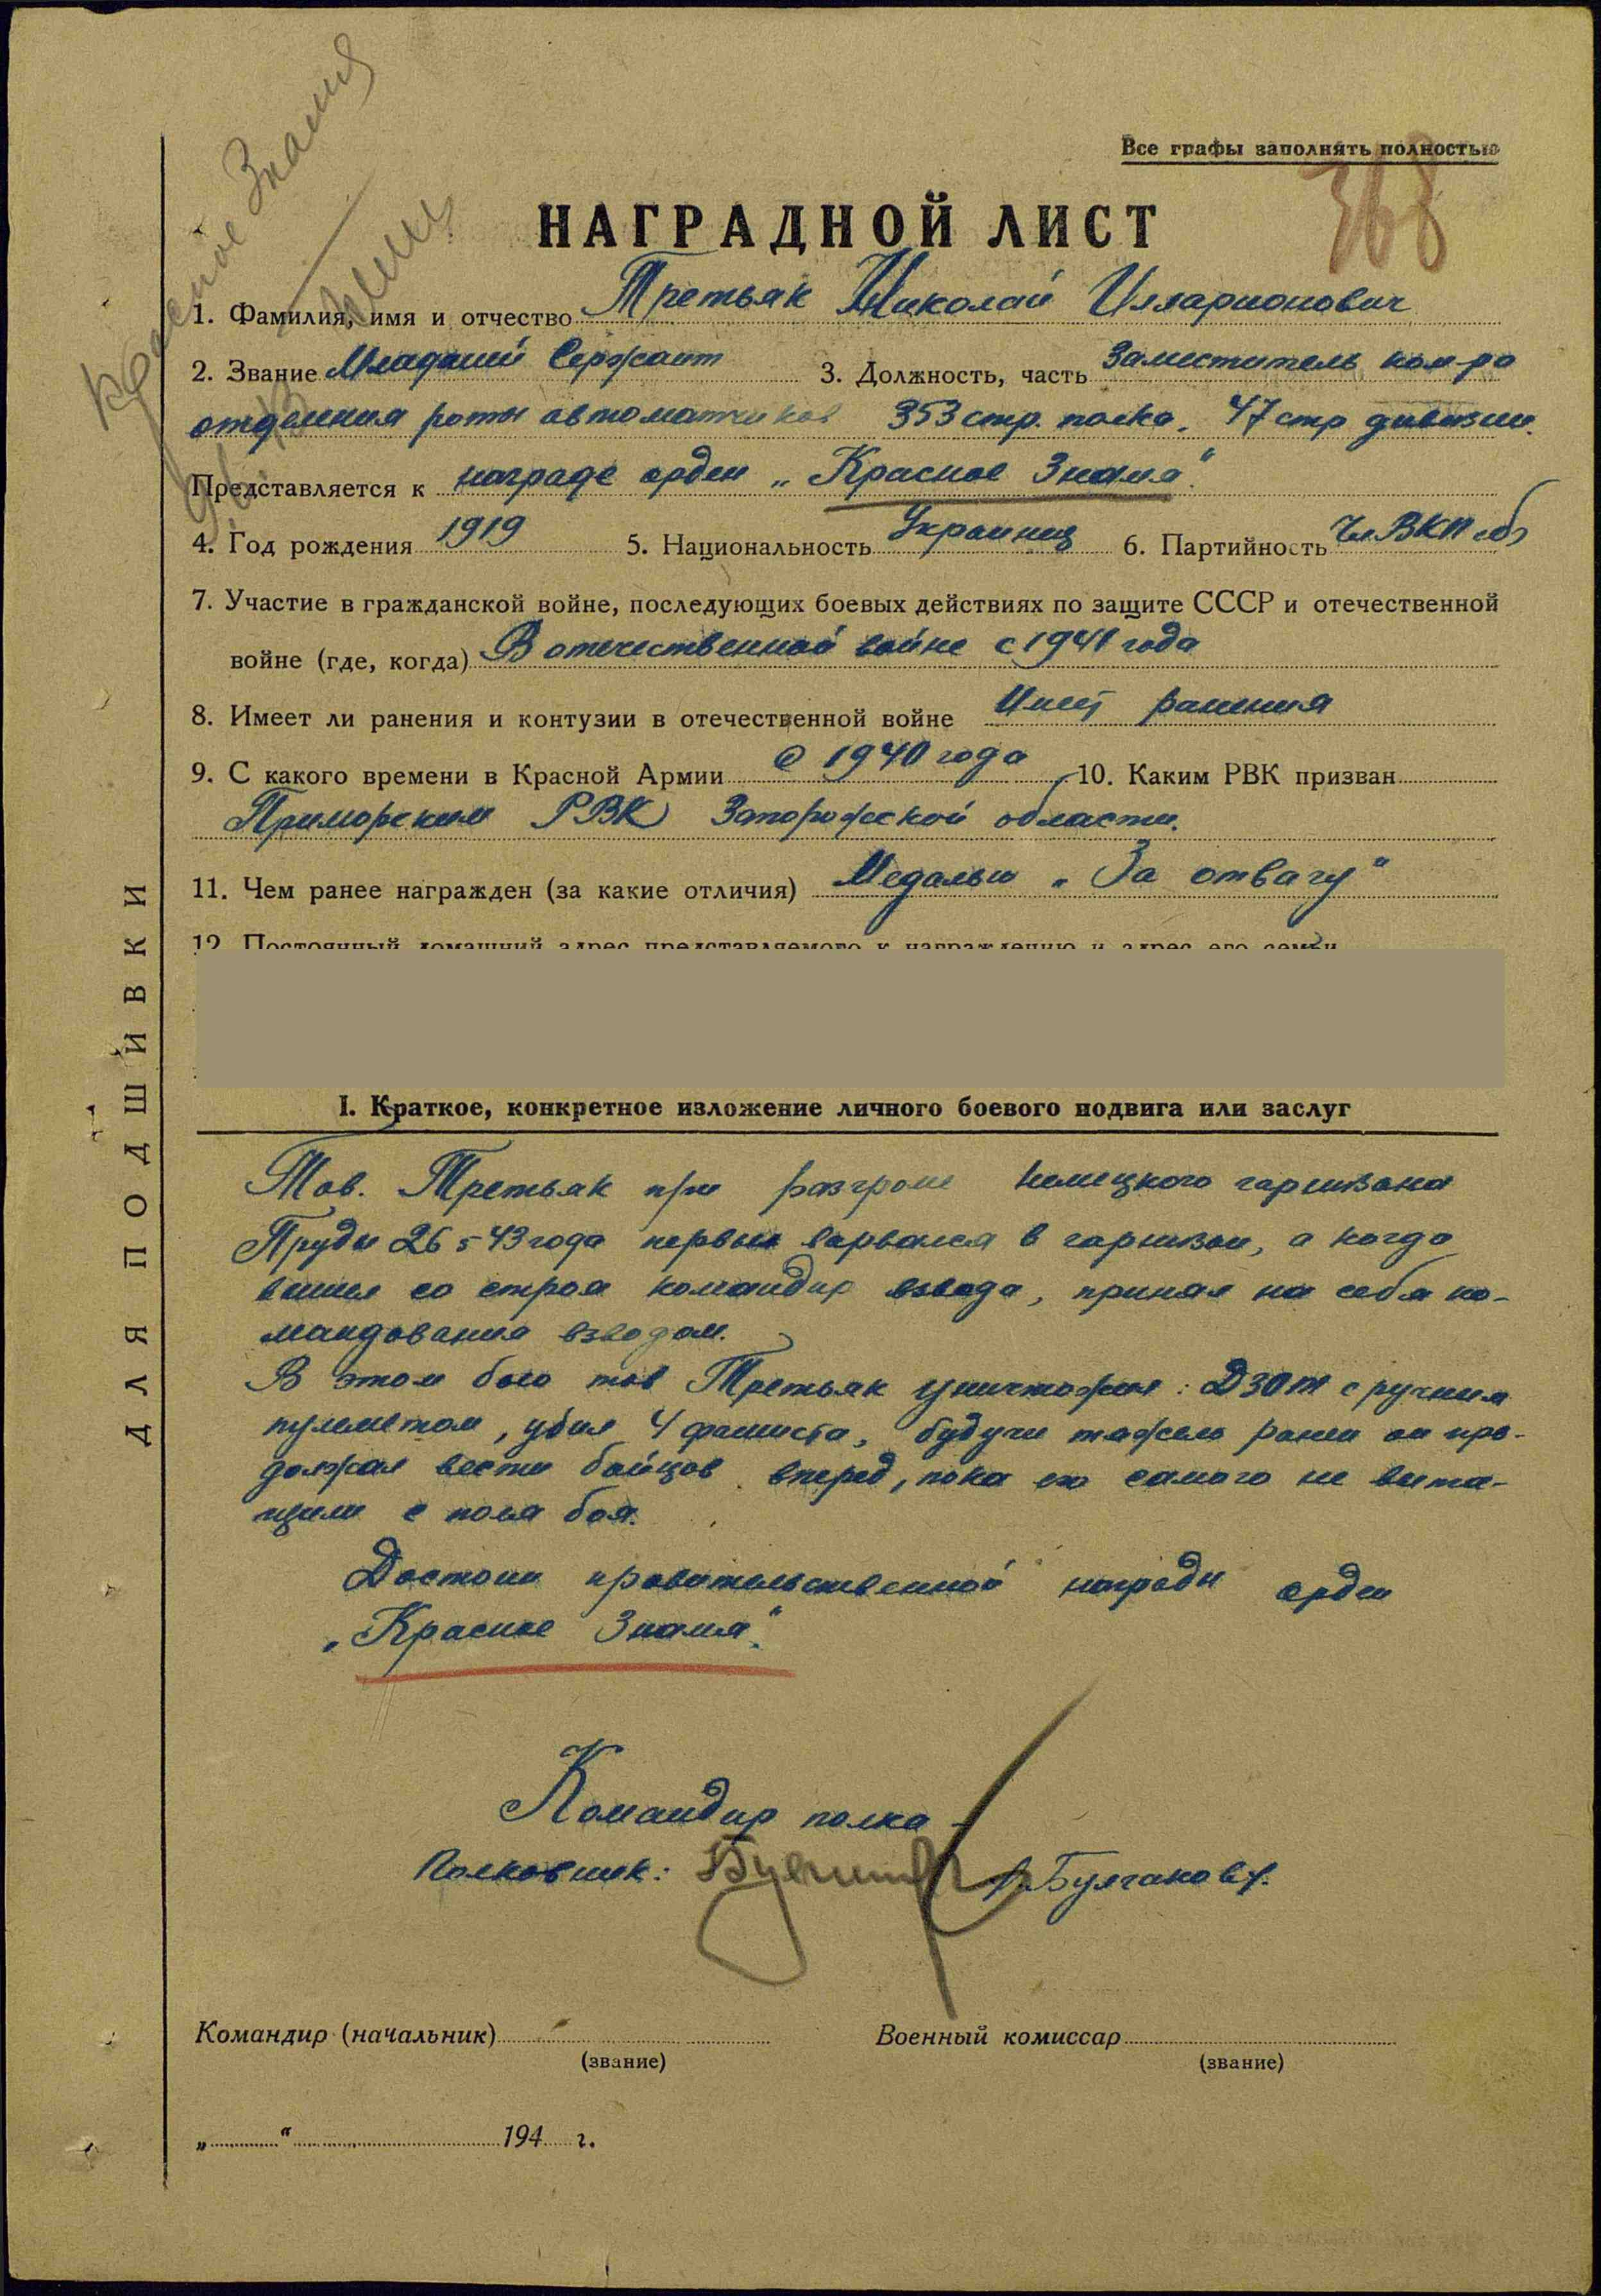 Красное Знамя
Все графы заполнять полностью
368
НАГРАДНОЙ ЛИСТ
1. Фамилия, имя и отчество Третьяк Николай Илларионович
2. Звание Младший Сержант 3. Должность, часть Заместитель ком-ра
отделения роты автоматчиков 353 стр. полка. 47 стр дивизии.
Представляется к награде орден „Красное Знамя“.
4. Год рождения 1919 5. Национальность Украинец 6. Партийность Чл ВКП(б)
7. Участие в гражданской войне, последующих боевых действиях по защите СССР и отечественной
войне (где, когда) В отечественной войне с 1941 года
8. Имеет ли ранения и контузии в отечественной войне Имеет ранения
9. С какого времени в Красной Армии с 1940 года 10. Каким РВК призван
Приморским РВК Запорожской области.
11. Чем ранее награжден (за какие отличия) Медалью „За отвагу“
12. Постоянный домашний адрес представляемого к награждению и адрес его семьи
I. Краткое, конкретное изложение личного боевого подвига или заслуг
Тов. Третьяк при разгроме немецкого гарнизона
Пруды 26 5 43 года первым ворвался в гарнизон, а когда
вышел со строя командир взвода, принял на себя ко-
мандования взводом.
В этом бою тов Третьяк уничтожил: ДЗОТ с ручным
пулеметом, убил 4 фашиста, будучи тяжело ранен он про-
должал вести бойцов вперед, пока его самого не выта-
щили с поля боя.
Достоин правительственной награды орден
„Красное Знамя“.
Командир полка -
Полковник: /Булгаков/.
Командир (начальник)
(звание)
Военный комиссар
(звание)
„ “ 194 г.
ДЛЯ ПОДШИВКИ